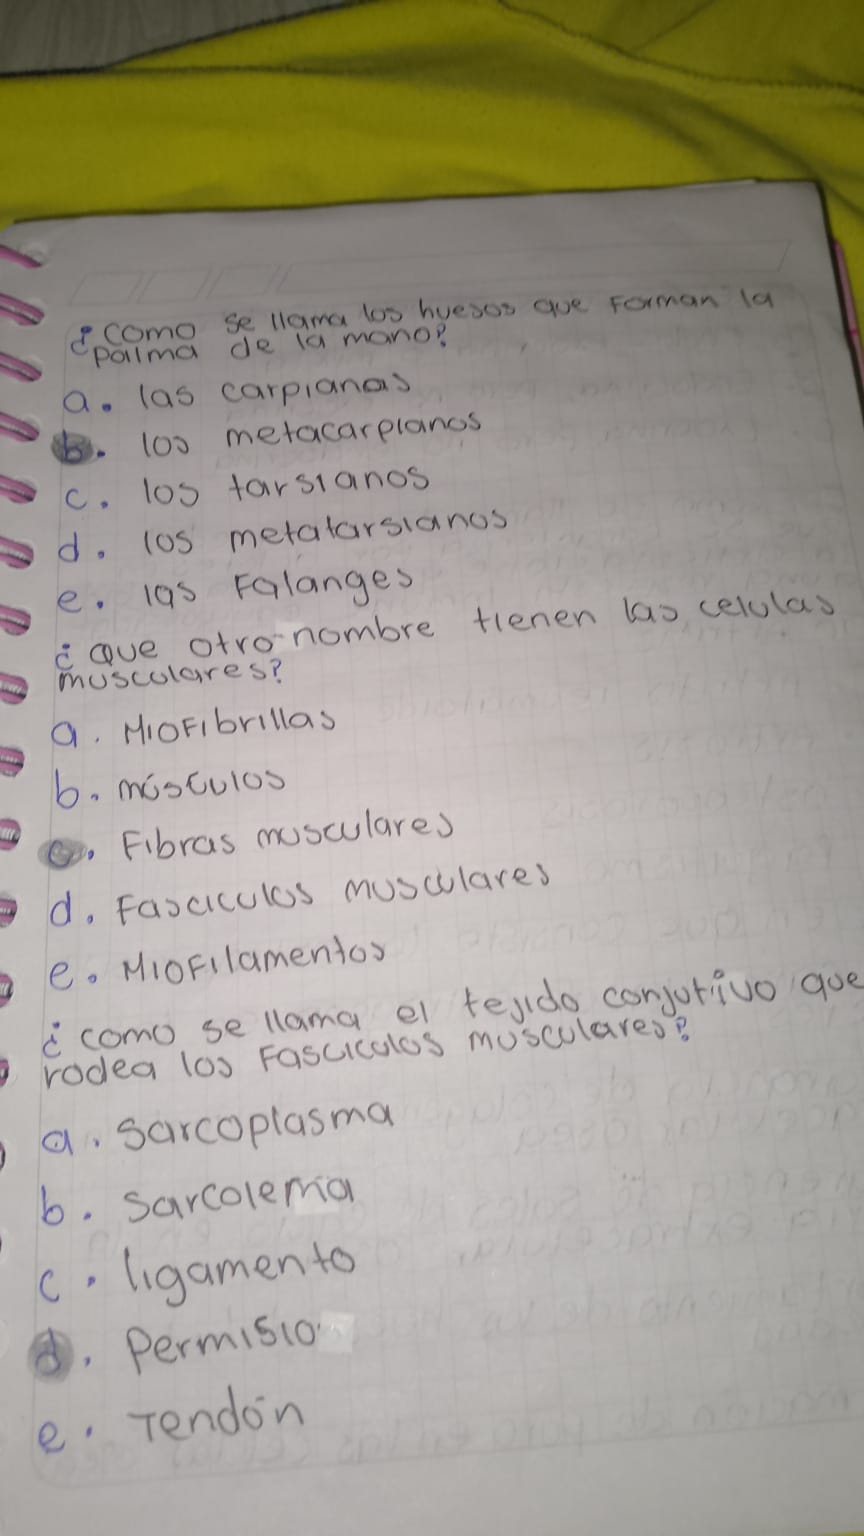 ¿Como se llama los huesos que Forman la
palma de la mano?
a. las carpianas
b. los metacarpianos
c. los tarsianos
d. los metatarsianos
e. las Falanges
¿que otro nombre tienen las celulas
musculares?
a. MioFibrillas
b. músculos
c. Fibras musculares
d. Fasciculos musculares
e. MioFilamentos
¿como se llama el tejido conjutivo que
rodea los Fasciculos musculares?
a. sarcoplasma
b. sarcolema
c. ligamento
d. Permisio
e. Tendón